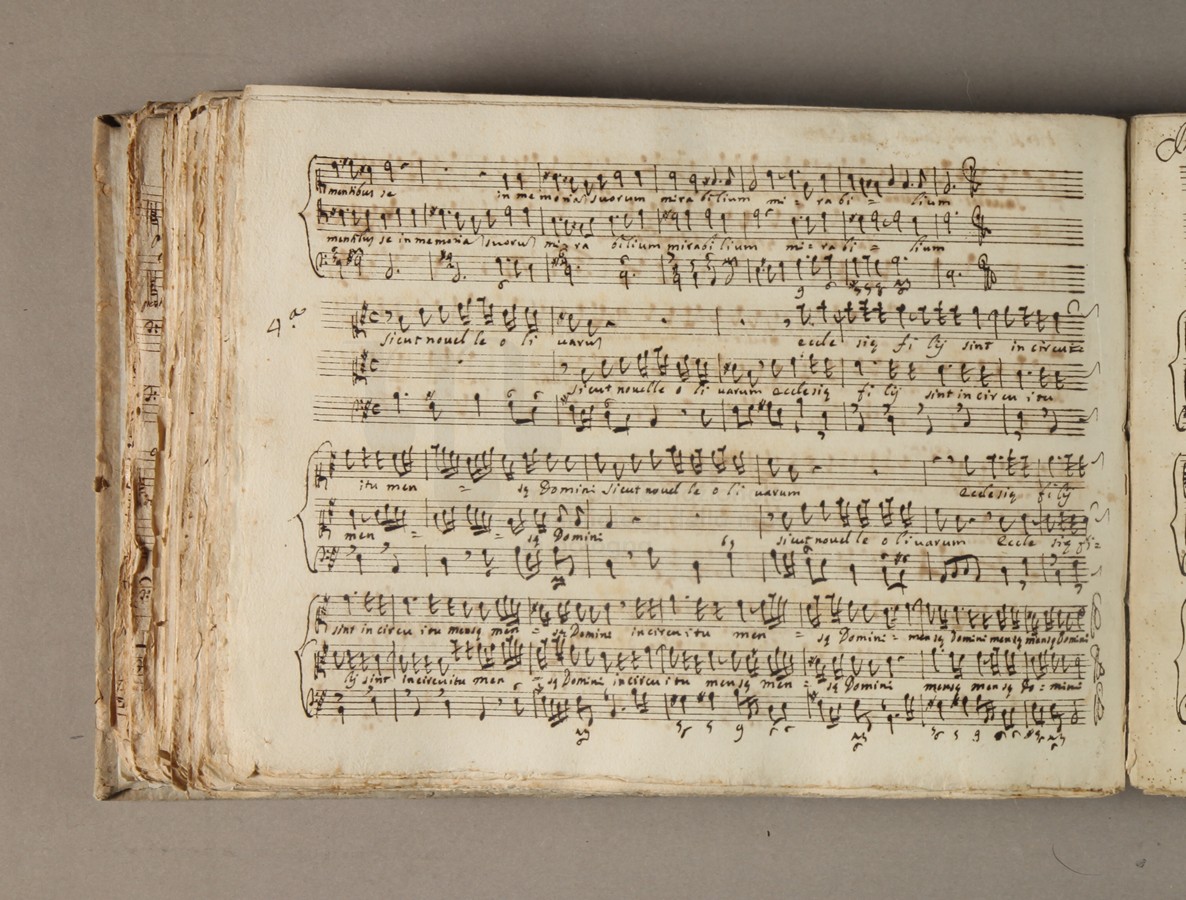 mentibus se in memoria suorum mirabilium mi = rabi = lium
mentibus se in memoria suorum mi = ra bilium mirabilium mi = rabi = lium
4ª
sicut novel le o li varum eccle się fi lij sint in circuitu
sicut novelle o li varum ecclesię fi lij sint in cir cu itu
itu men = sę Domini sicut novel le o li varum ecclesię filij
men = = sę Domini sicut novel le o livarum eccle się fi =
sint in circu itu mensę men = sę Domini incircuitu men = sę Domini = mensę Domini mensę mensę Domini
lij sint incircuitu men = sę Domini incircuitu mensę men = sę Domini mensę mensę Do = mini